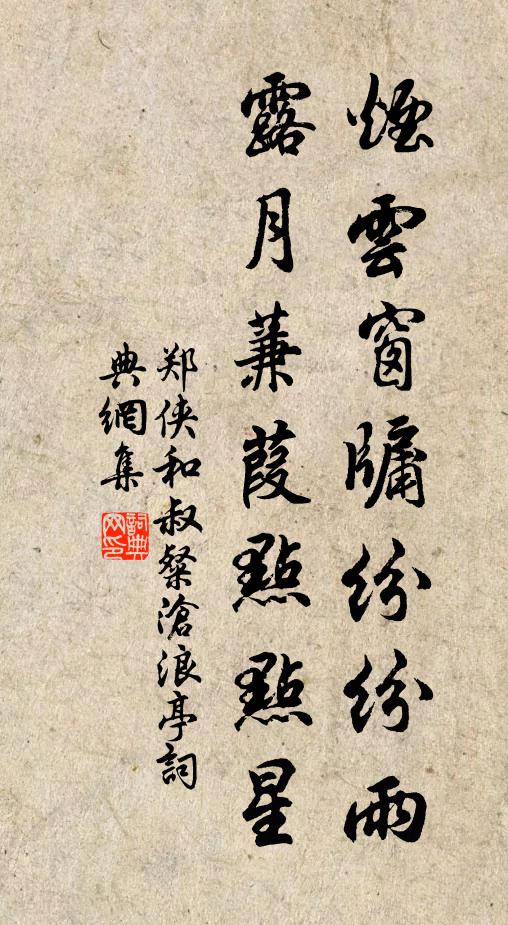 煙雲窗牖紛紛雨
露月蒹葭點點星
郑侠和叔粲滄浪亭詞
典網集
詞典网印